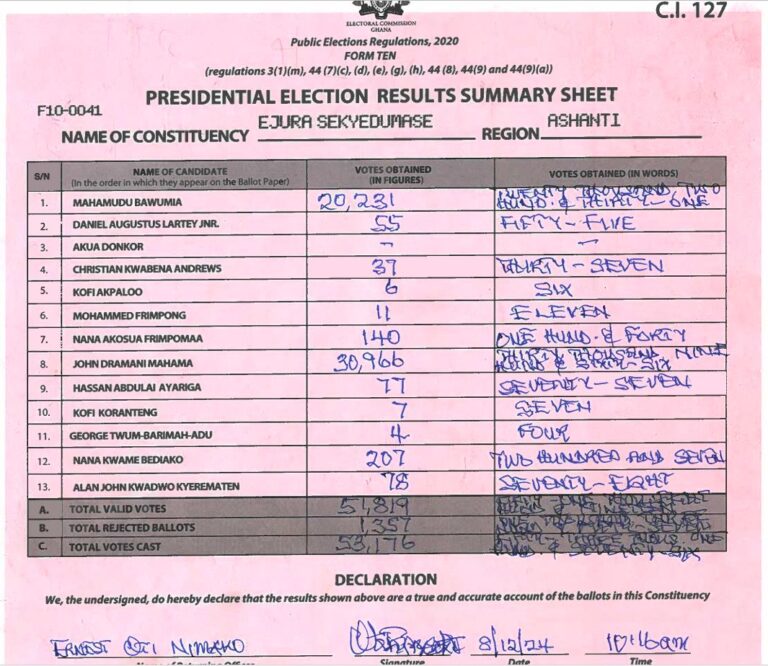 C.I. 127
ELECTORAL COMMISSION
GHANA
Public Elections Regulations, 2020
FORM TEN
(regulations 3(1)(m), 44 (7)(c), (d), (e), (g), (h), 44 (8), 44(9) and 44(9)(a))
PRESIDENTIAL ELECTION RESULTS SUMMARY SHEET
F10-0041
NAME OF CONSTITUENCY EJURA SEKYEDUMASE REGION ASHANTI
S/N NAME OF CANDIDATE (In the order in which they appear on the Ballot Paper) VOTES OBTAINED (IN FIGURES) VOTES OBTAINED (IN WORDS)
1. MAHAMUDU BAWUMIA 20,231 TWENTY THOUSAND TWO HUND. & THIRTY-ONE
2. DANIEL AUGUSTUS LARTEY JNR. 55 FIFTY-FIVE
3. AKUA DONKOR - -
4. CHRISTIAN KWABENA ANDREWS 37 THIRTY-SEVEN
5. KOFI AKPALOO 6 SIX
6. MOHAMMED FRIMPONG 11 ELEVEN
7. NANA AKOSUA FRIMPOMAA 140 ONE HUND. & FORTY
8. JOHN DRAMANI MAHAMA 30,966 THIRTY THOUSAND NINE HUND & SIXTY-SIX
9. HASSAN ABDULAI AYARIGA 77 SEVENTY-SEVEN
10. KOFI KORANTENG 7 SEVEN
11. GEORGE TWUM-BARIMAH-ADU 4 FOUR
12. NANA KWAME BEDIAKO 207 TWO HUNDRED AND SEVEN
13. ALAN JOHN KWADWO KYEREMATEN 78 SEVENTY-EIGHT
A. TOTAL VALID VOTES 51,819
B. TOTAL REJECTED BALLOTS 1,357
C. TOTAL VOTES CAST 53,176 HUND. & SEVENTY-SIX
DECLARATION
We, the undersigned, do hereby declare that the results shown above are a true and accurate account of the ballots in this Constituency
ERNEST OTI NIMAKO 8/12/24 10:16am
Name of Returning Officer Signature Date Time